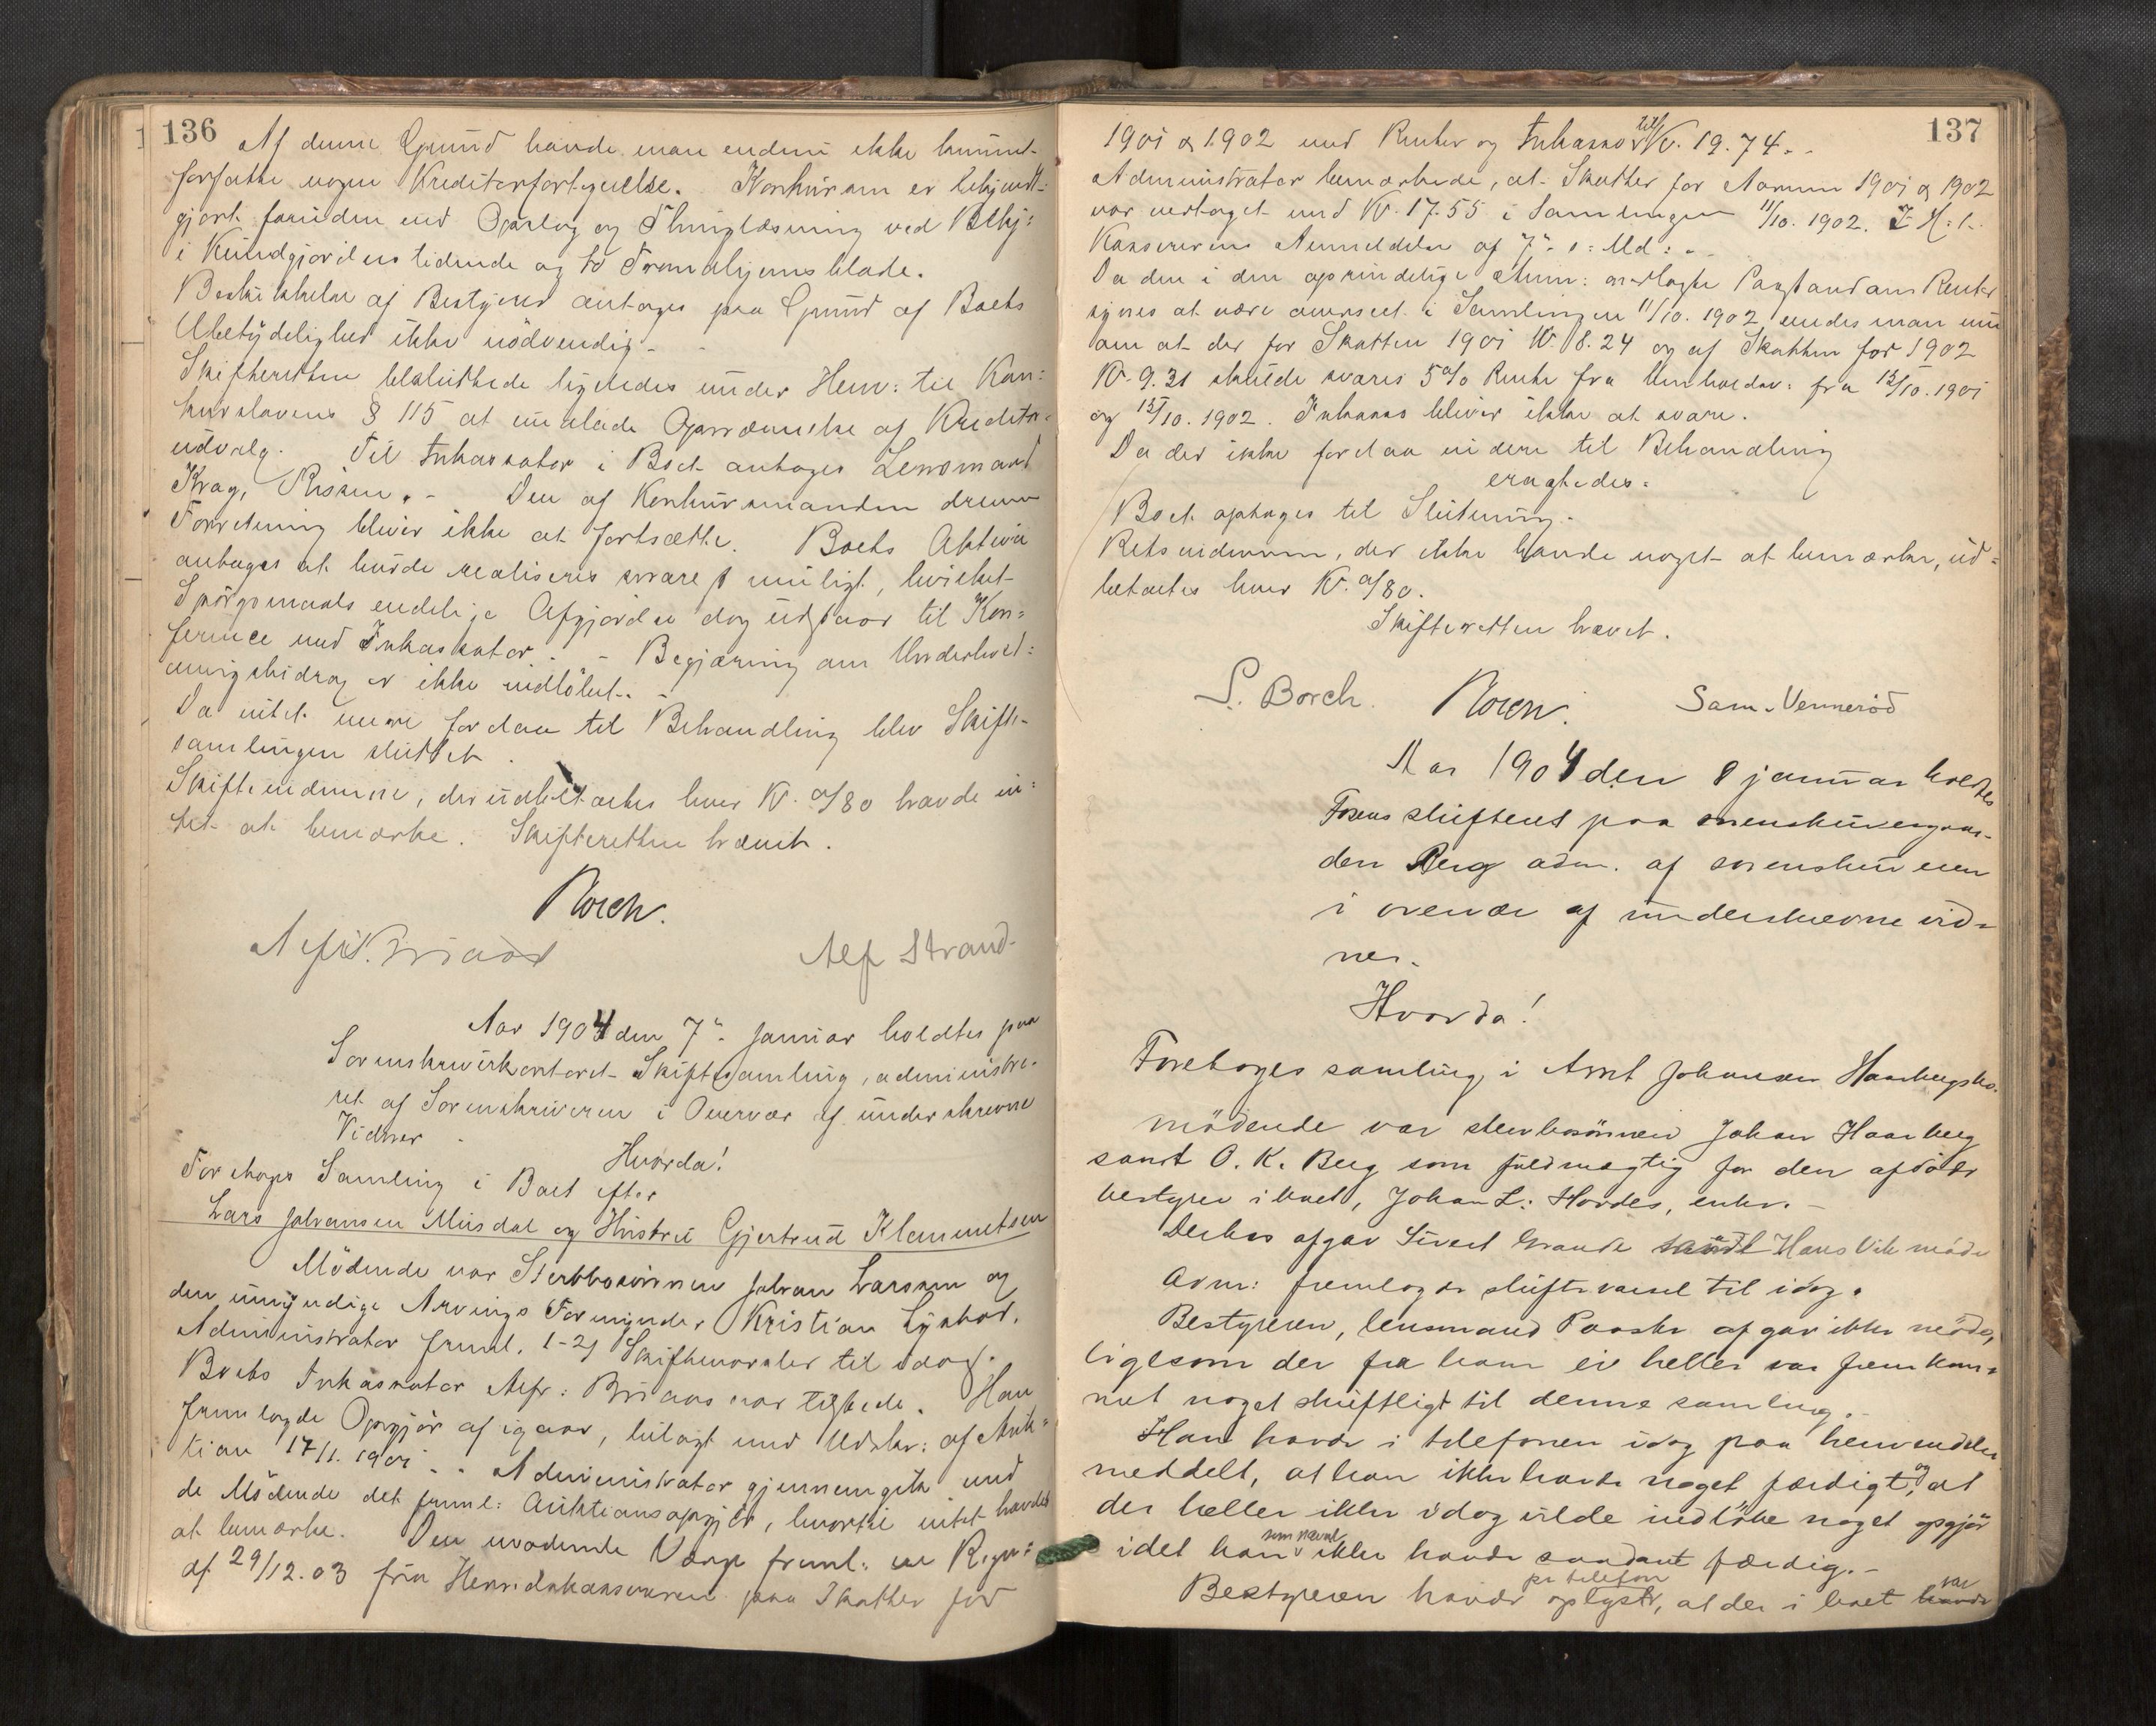 136
Af denne Grund havde man endnu ikke kunnet
forfatte nogen Kreditorfortegnelse. Konkursen er bekjendt-
gjort foruden ved Opslag og Thinglæsning ved Bekj:
i Kundgjørelsestidende og to Trondhjemsblade.
Beskikkelse af Bestyrer antages paa Grund af Boets
Ubetydelighed ikke nödvendig.
Skifteretten besluttede ligeledes under Henv: til Kon:
kurslovens § 115 at undlade Opnævnelse af Kreditor-
udvalg. Til Inkassator i Boet antages Lensmand
Krag, Rissen. - Den af Konkursmanden drevne
Forretning bliver ikke at fortsætte. Boets Aktiva
antages at burde realiseres snarest muligt, hvilket
Spörgsmaals endelige Afgjörelse dog udstaar til Kon=
ference med Inkassator. - Begjæring om Underhold:
ningsbidrag er ikke indlöbet.
Da intet mere forelaa til Behandling blev Skifte-
samlingen sluttet.
Skiftevidnerne, der udbetaltes hver Kr. 0/80 havde in:
tet at bemærke. Skifteretten hævet.
Borch.
Alf Strand
Aar 1904 den 7de Januar holdtes paa
Sorenskriverkontoret Skiftesamling, administre-
ret af Sorenskriveren i Overvær af underskrevne
Vidner
Hvorda!
Foretoges Samling i Boet efter
Lars Johansen Musdal og Hustru Gjertrud Klemmetsen
Mödende var Sterbbosönnen Johan Larsen og
den umyndige Arvings Formynder Kristian
Administrator freml. 1-2) Skiftevarsler til idag.
Boets Inkassator Alfr: var tilstede. Han
fremlagde Opgjör af igaar, bilagt med Udskr: af Auk=
tion 17/1. 1901. - Administrator gjennemgik med
de Mödende det freml: Auktionsopgjör, hvortil intet havdes
at bemærke. Den mödende Værge freml: en Regn:
af 29/12.03 fra Herredskassereren paa Skatter for
137
1901 & 1902 med Renter og Inkasso til Kr. 19.74. -
Administrator bemærkede, at Skatter for Aarene 1901 & 1902
var vedtaget med Kr. 17.55 i Samlingen 11/10. 1902. J-H: t.
Kassererens Anmeldelse af 7de s: Md: -
Da den i den oprindelige Anm: nedlagte Paastand om Renter
synes at være overseet i Samlingen 11/10. 1902 enedes man nu
om at der for Skatten 1901 Kr. 8.24 og af Skatten for 1902
Kr. 9.31 skulde svares 5% Rente fra henholdsv: fra 15/10. 1901
og 15/10. 1902. Inkasso bliver ikke at svare.
Da der ikke forelaa videre til Behandling
eragtedes:
Boet optages til Slutning.
Retsvidnerne, der ikke havde noget at bemærke, ud=
betaltes hver Kr. 0/80.
Skifteretten hævet.
L. Borch. Borch. Sam. Venneröd
Aar 1904 den 8 januar holdtes
Fosens skifteret paa sorenskrivergaar-
den Berg adm. af sorenskriveren
i overvær af underskrevne vid-
ner.
Hvorda!
Foretoges samling i Arnt Johansen Haarbergsbo.
mödende var sterbosönnen Johan Haarberg
samt O. K. Berg som fuldmægtig for den afdöde
bestyrer i boet, Johan L: Hovdes, enke. -
Derhos afgav Sivert Grande samt Hans Vik möde
Adm: fremlagde skiftevarsel til idag.
Bestyreren, lensmand Paaske afgav ikke möde,
ligesom der fra ham ei heller var fremkom-
met noget skriftligt til denne samling.
Han havde i telefonen idag paa henvendelse
meddelt, at han ikke havde noget færdigt, og at
der heller ikke idag vilde indlöbe noget opgjör
idet han som nævnt ikke havde saadant færdig. -
Bestyreren havde pr telefon oplyst, at der i boet havde var